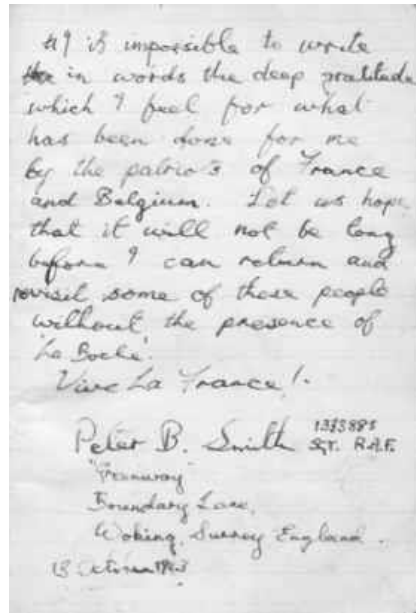 It is impossible to write
in words the deep gratitude
which I feel for what
has been done for me
by the patriots of France
and Belgium. Let us hope
that it will not be long
before I can return and
revisit some of these people
without the presence of
'Le Boche'.
Vive La France!.
Peter B. Smith 1313885
SGT. R.A.F.
Boundary Lane,
Woking, Surrey England.